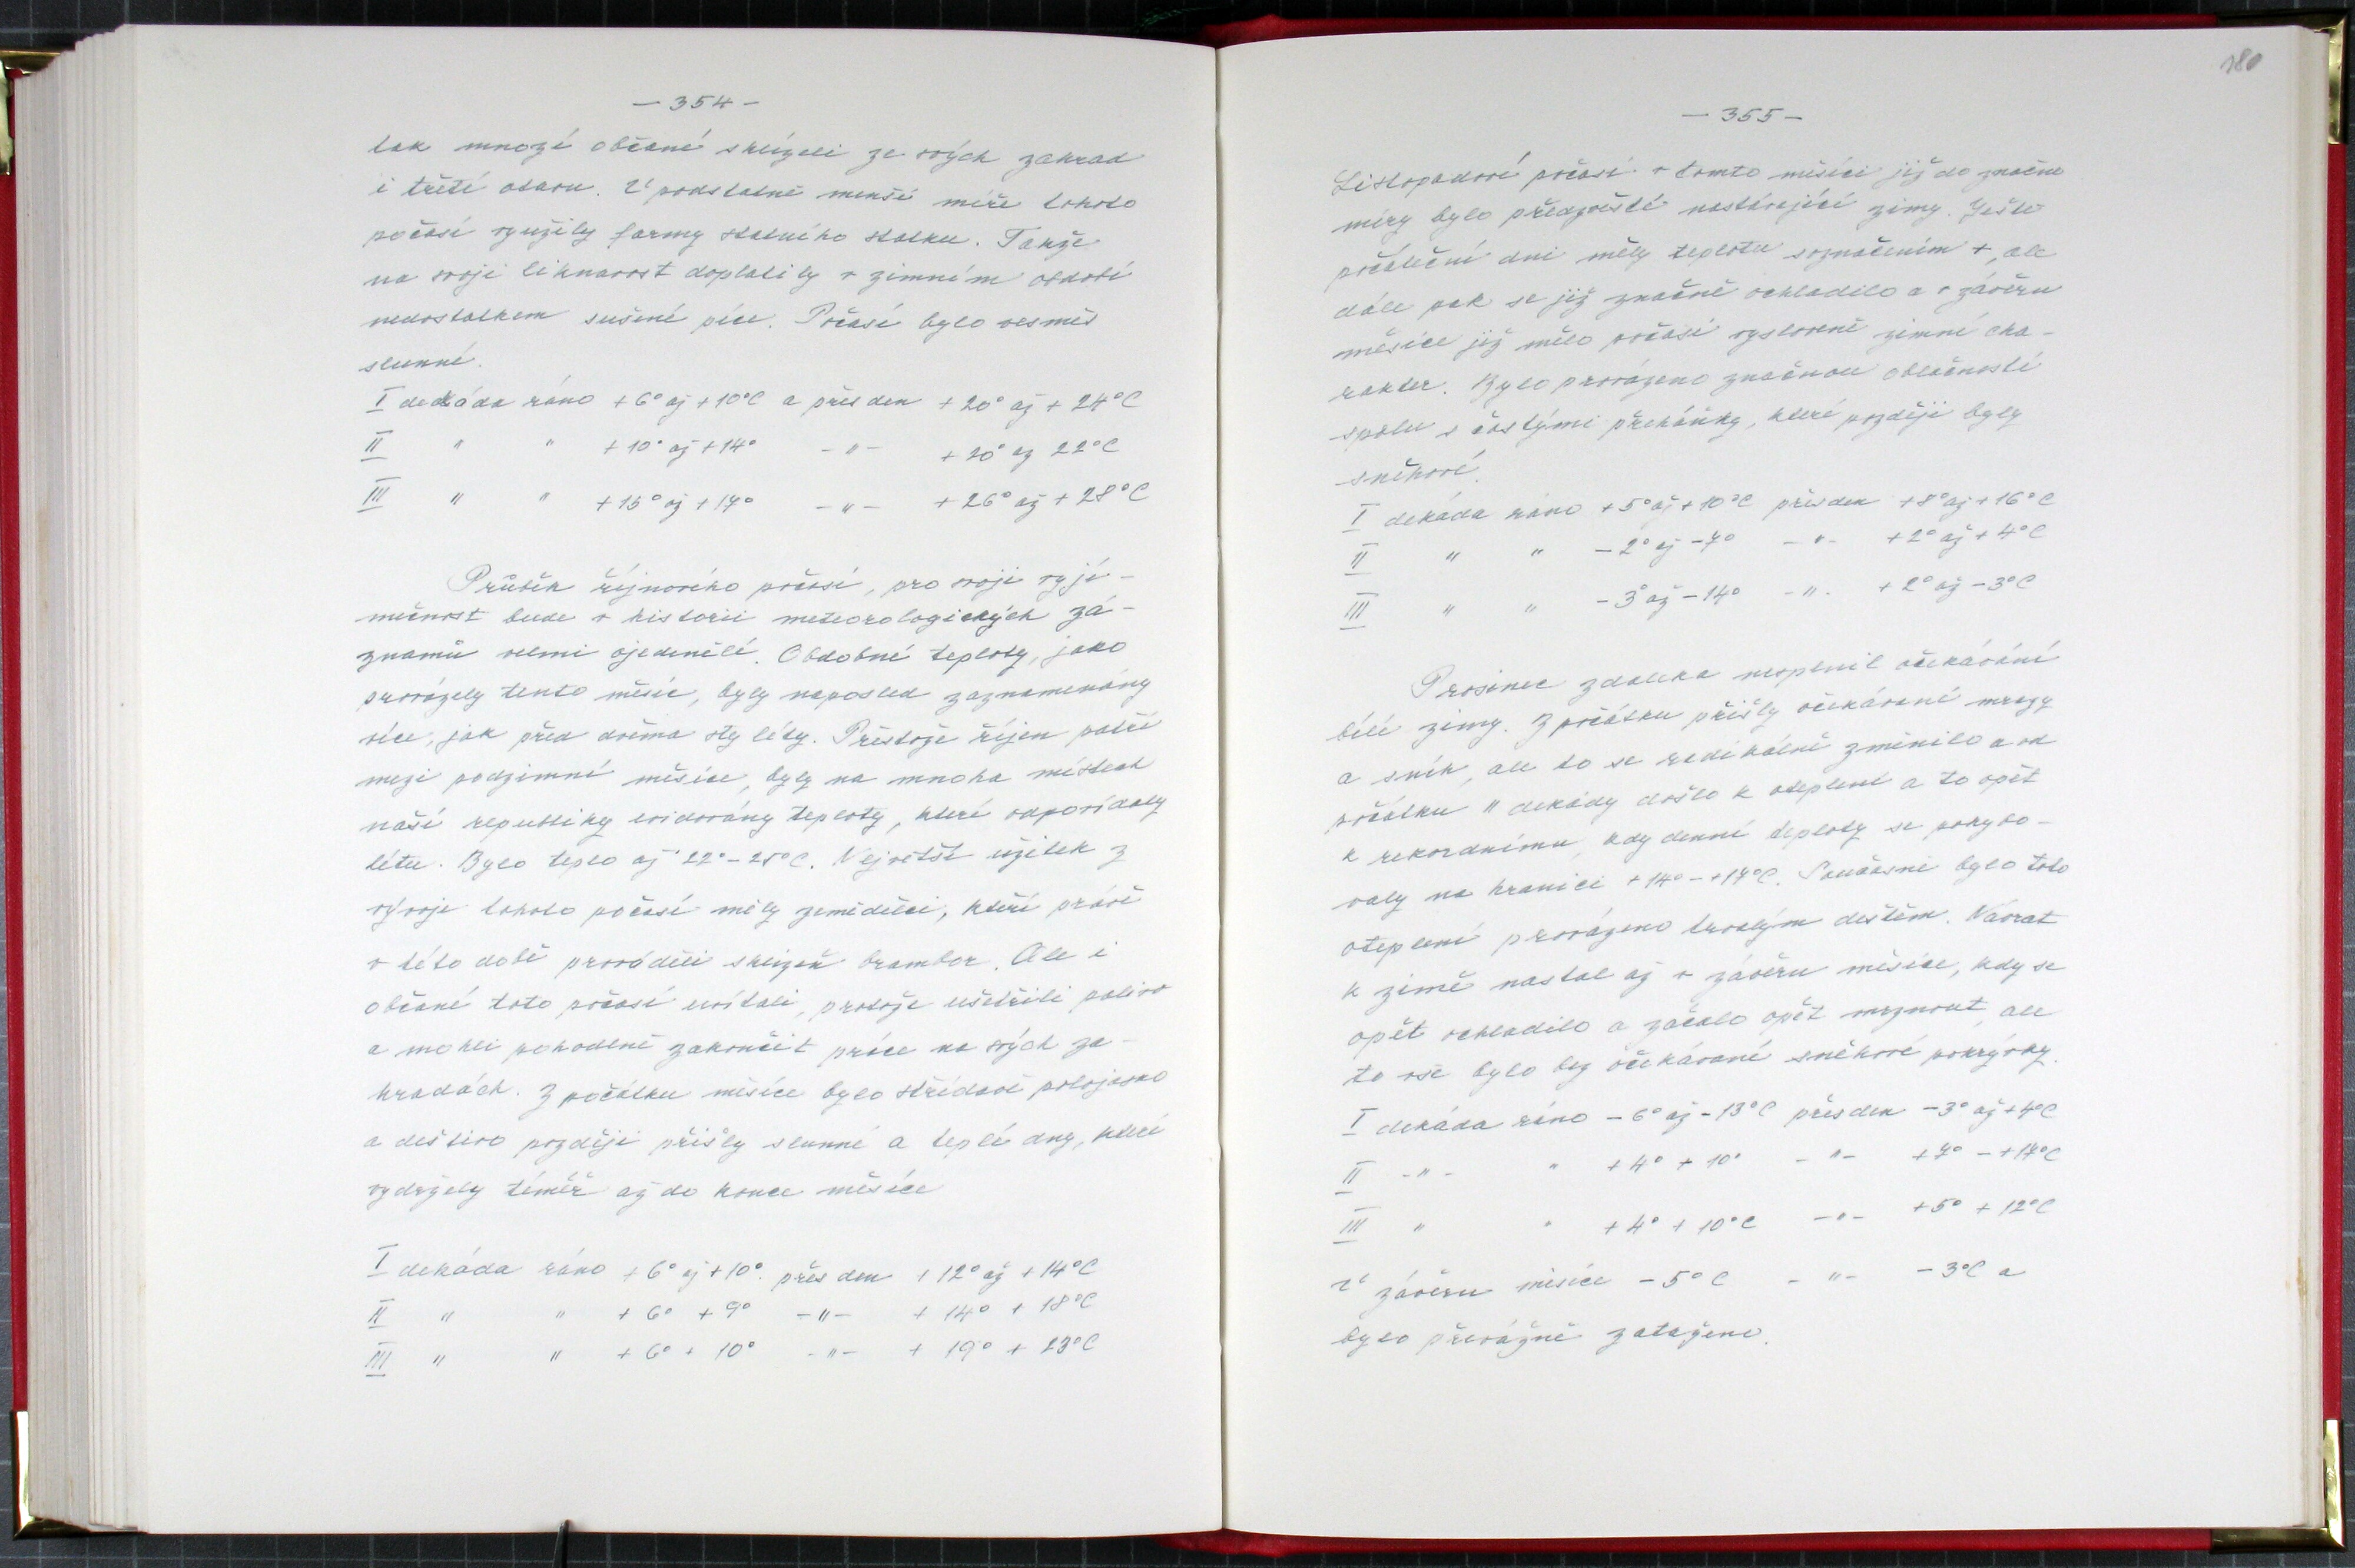 — 354 —
tak mnozí občané sklízeli ze svých zahrad
i třetí otavu. V podstatně menší míře tohoto
počasí využily farmy statního statku. Takže
na svoji liknavost doplatily v zimním období
nedostatkem sušené píce. Počasí bylo vesměs
slunné.
I dekáda ráno +6° až +10°C a přes den +20° až +24°C
II " " +10° až +14° -"- +20° až 22°C
III " " +15° až +17° -"- +26° až +28°C
Průběh říjnového počasí, pro svoji vyjí-
mečnost bude v historii meteorologických zá-
znamů velmi ojedinělé. Obdobné teploty, jako
provázely tento měsíc, byly naposled zaznamenány
více, jak před dvěma sty léty. Přestože říjen patří
mezi podzimní měsíce, byly na mnoha místech
naší republiky evidovány teploty, které odpovídaly
létu. Bylo teplo až 22° - 25°C. Největší užitek z
vývoje tohoto počasí měly zemědělci, kteří právě
v této době prováděli sklizeň brambor. Ale i
občané toto počasí uvítali, protože ušetřili palivo
a mohli pohodlně zakončit práce na svých za-
hradách. Z počátku měsíce bylo střídavě polojasno
a deštivo později přišly slunné a teplé dny, které
vydržely téměř až do konce měsíce
I dekáda ráno +6° až +10°. přes den +12° až +14°C
II " " +6° +9° -"- +14° +18°C
III " " +6° + 10° -"- + 19° + 23°C
180
— 355 —
Listopadové počasí v tomto měsíci již do značné
míry bylo předzvěstí nastávající zimy. Ještě
počáteční dni měly teplotu soznačením +, ale
dále pak se již značně ochladilo a v závěru
měsíce již mělo počasí vysloveně zimní cha-
rakter. Bylo provázeno značnou oblačností
spolu s častými přeháňky, které později byly
sněhové.
I dekáda ráno +5° až +10°C přes den +8° až +16°C
II " " -2° až -7° -"- +2° až +4°C
III " " -3° až -14° -"- +2° až -3°C
Prosinec zdaleka nesplnil očekávání
bílé zimy. Z počátku přišly očekávané mrazy
a sníh, ale to se radikálně změnilo a od
počátku II dekády došlo k oteplení a to opět
k rekordnímu, kdy denní teploty se pohybo-
valy na hranici +14° - +17°C. Současně bylo toto
oteplení provázeno trvalým deštěm. Návrat
k zimě nastal až v závěru měsíce, kdy se
opět ochladilo a začalo opět mrznout, ale
to vše bylo bez očekávané sněhové pokrývky.
I dekáda ráno -6° až -13°C přes den -3° až +4°C
II -"- " +4° + 10° -"- +7° - +17°C
III " " +4° + 10°C -"- +5° + 12°C
V závěru měsíce -5°C -"- -3°C a
bylo převážně zataženo.